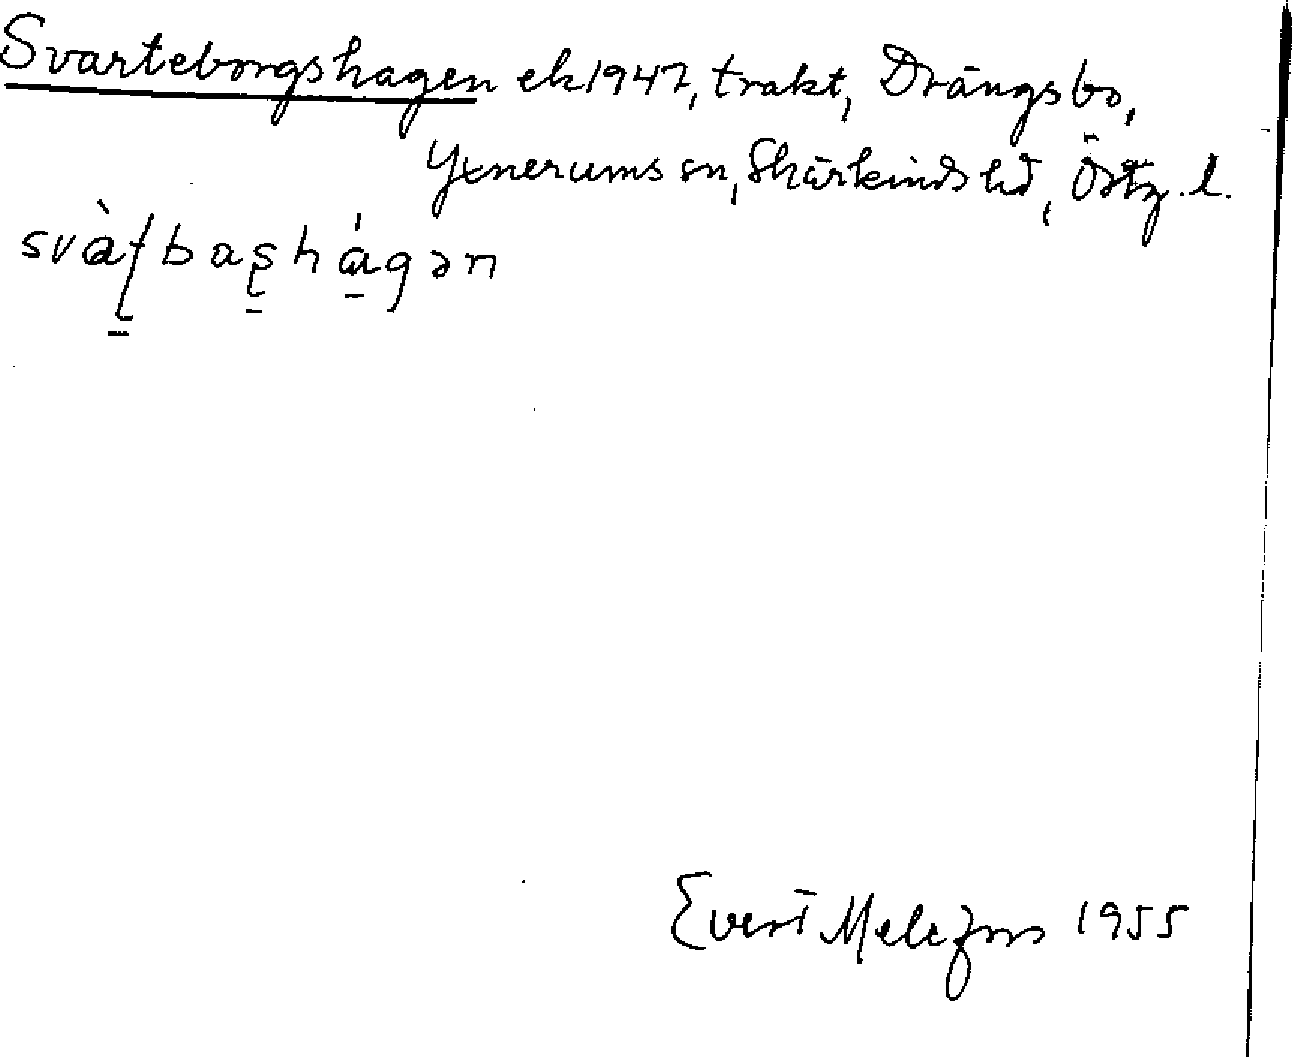 Svarteborgshagen ek 1947, trakt, Drängsbo,
Yxnerums sn, Skärkinds hd, Östg. l.
svàʈbaʂhágən
Evert Melefors 1955